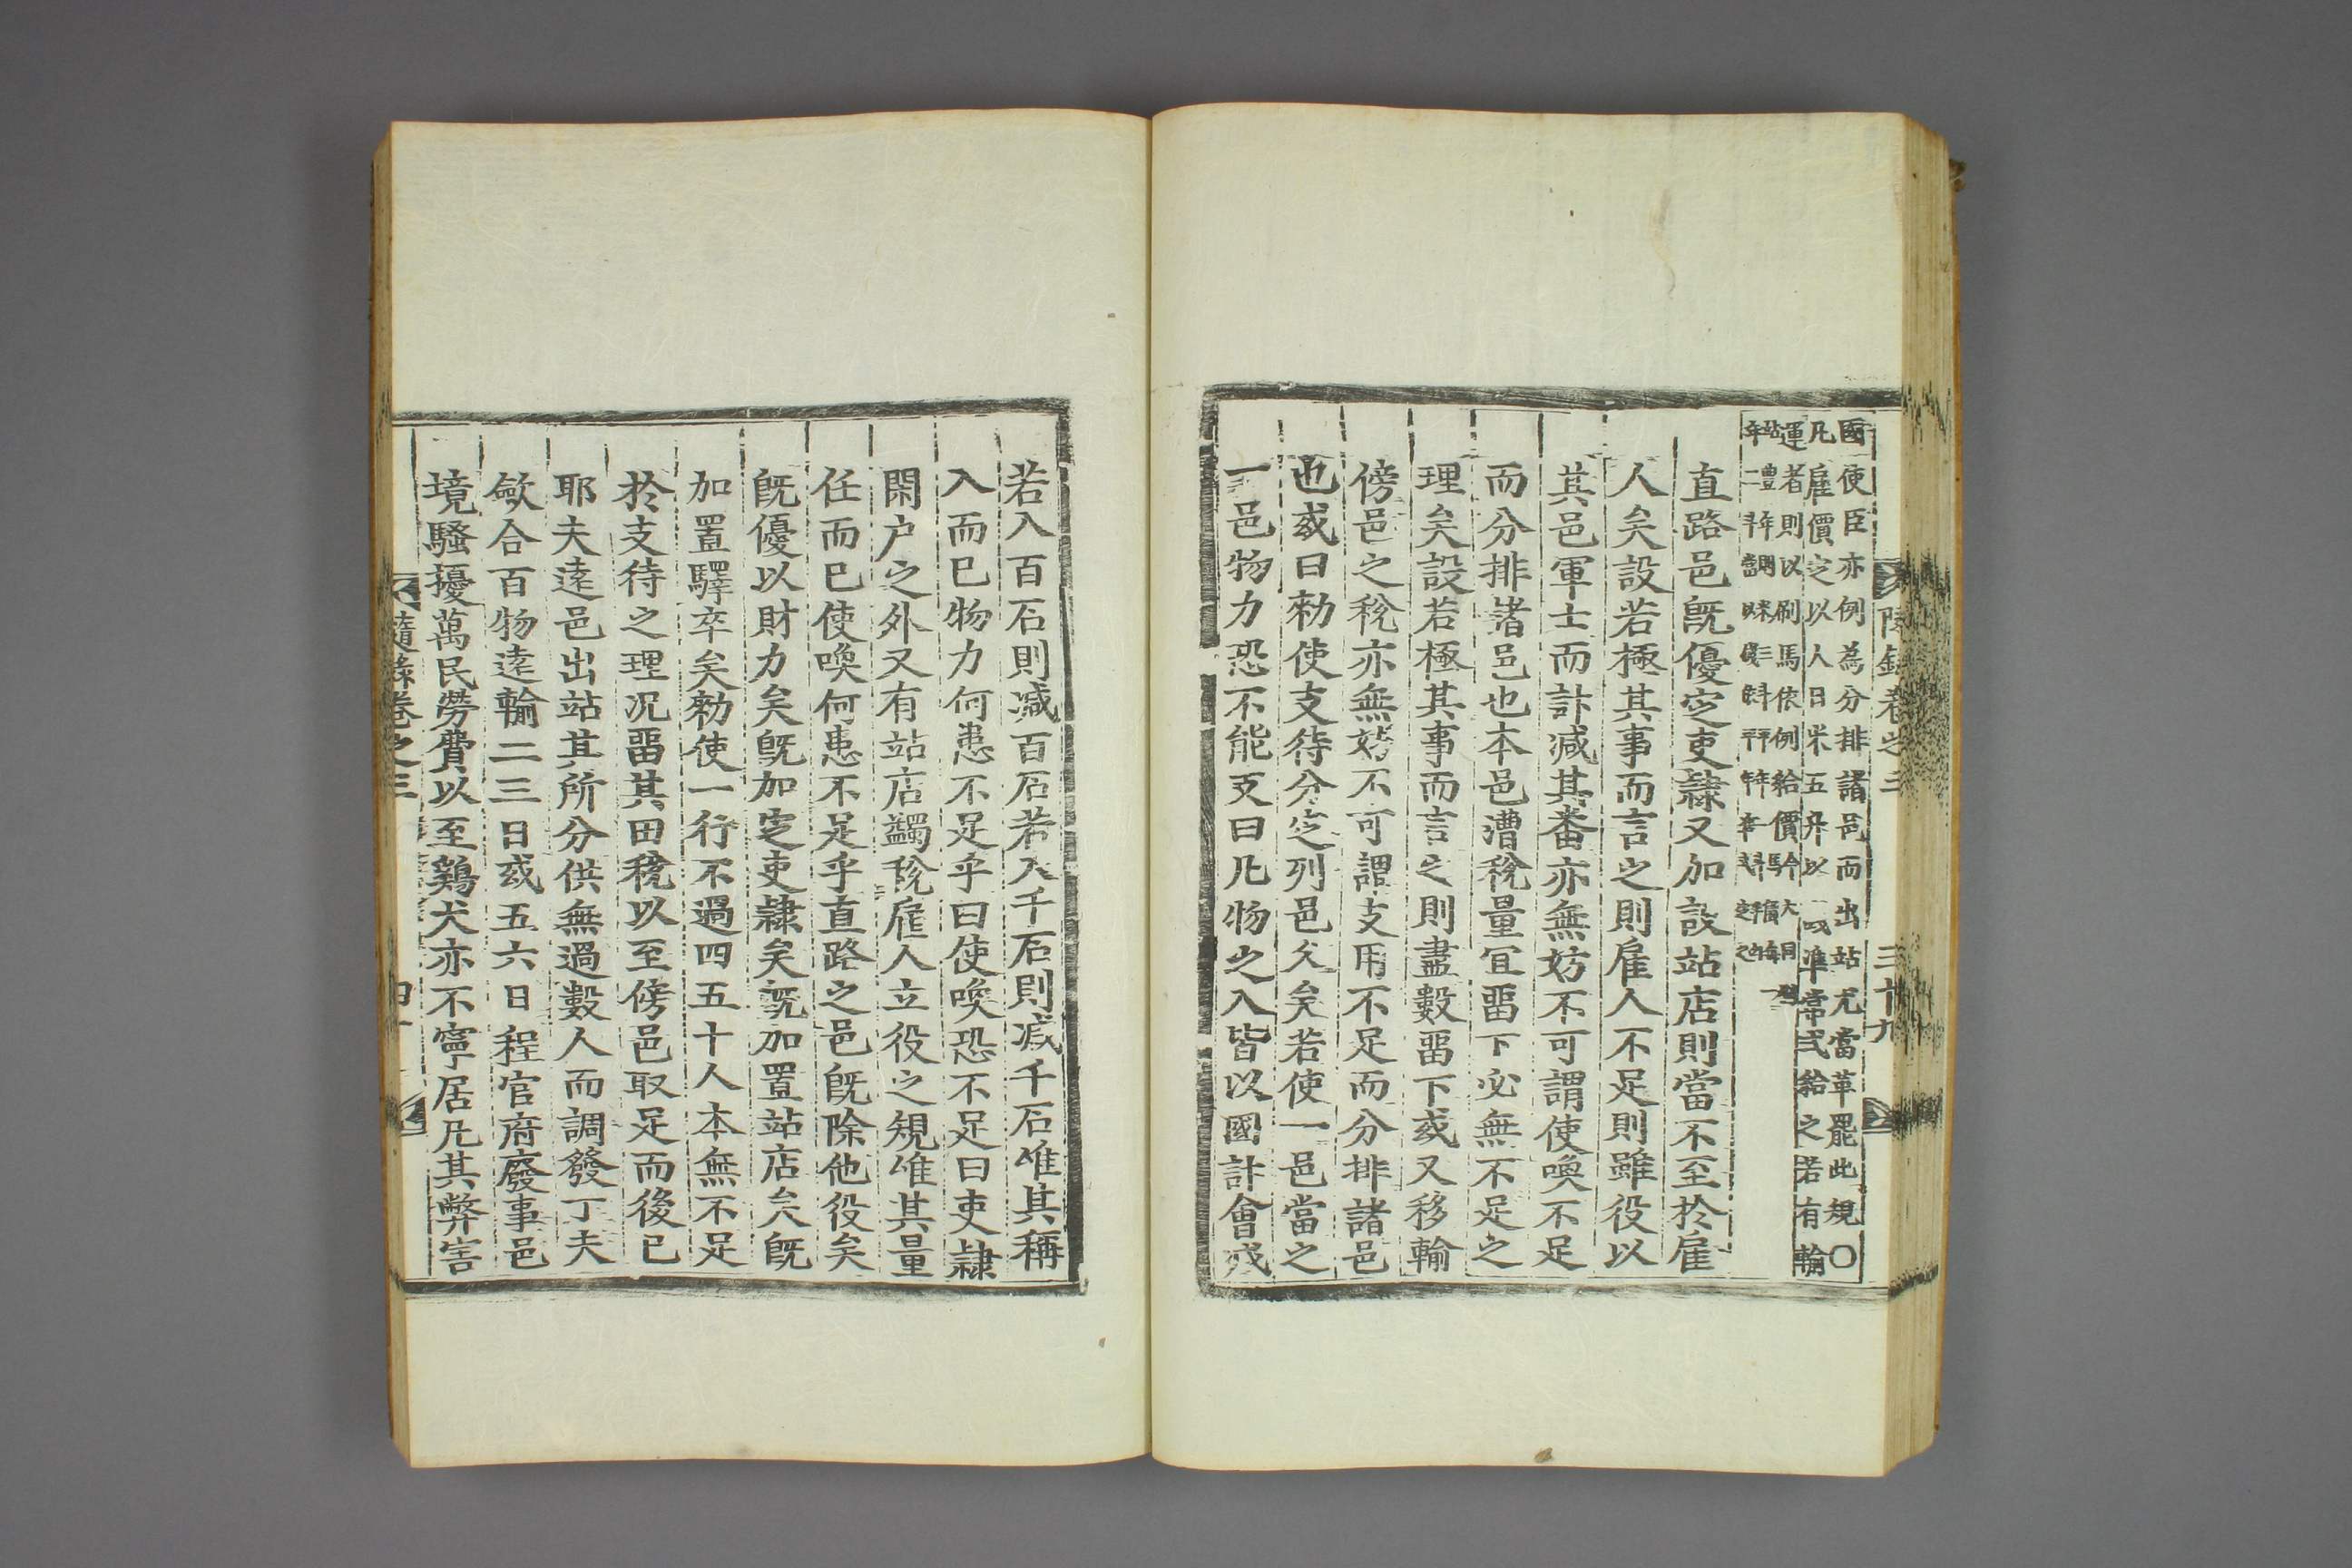 隨錄卷之三 三十九
國使臣亦例為分排諸邑而出站尤當革罷此規○
凡雇價定以人日米五升以 准常式給之若有輸
運者則以刷馬依例給價
直路邑既優定吏隸又加設站店則當不至於雇
人矣設若極其事而言之則雇人不足則雖役以
其邑軍士而計减其番亦無妨不可謂使喚不足
而分排諸邑也本邑漕稅量宜畱下必無不足之
理矣設若極其事而言之則盡數畱下或又移輸
傍邑之稅亦無妨不可謂支用不足而分排諸邑
也或曰勑使支待分定列邑久矣若使一邑當之
一邑物力恐不能支曰凡物之入皆以國計會减
若入百石則减百石若入千石則减千石唯其稱
入而已物力何患不足乎曰使喚恐不足曰吏隸
閑户之外又有站店蠲稅雇人立役之規唯其量
任而已使喚何患不足乎直路之邑既除他役矣
既優以財力矣既加定吏隸矣既加置站店矣既
加置驛卒矣勑使一行不過四五十人本無不足
於支待之理况畱其田稅以至傍邑取足而後已
耶夫遠邑出站其所分供無過數人而調發丁夫
斂合百物遠輸二三日或五六日程官府廢事邑
境騷擾萬民勞費以至鷄犬亦不寧居凡其弊害
隨錄卷之三 四十